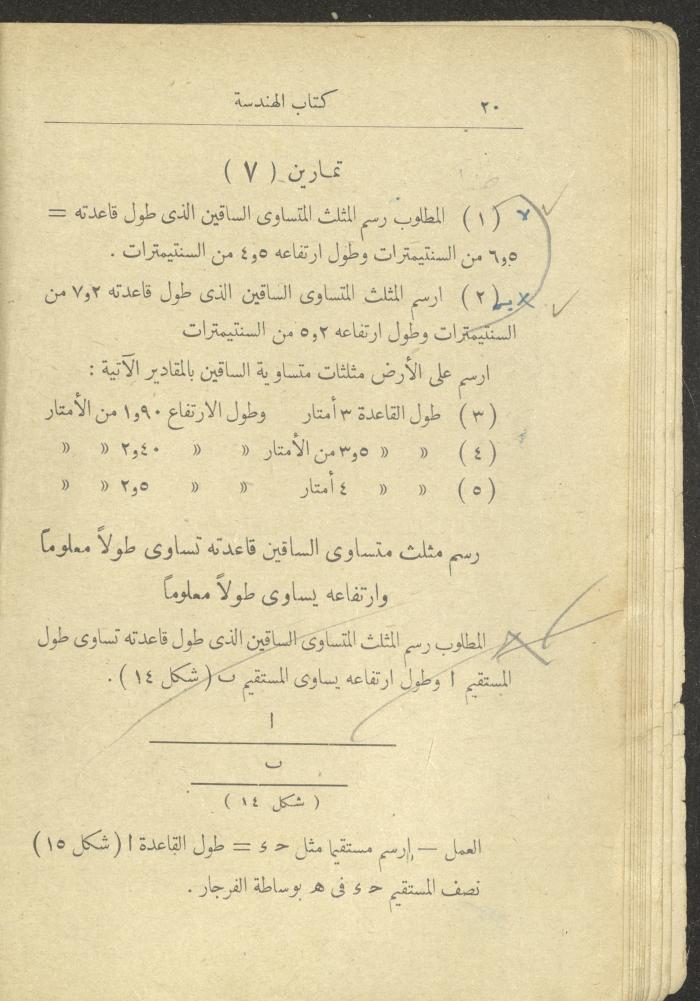 ٢٠ كتاب الهندسة
تمارين ( ٧ )
( ١ ) المطلوب رسم المثلث المتساوى الساقين الذى طول قاعدته =
٥و٦ من السنتيمترات وطول ارتفاعه ٥و٤ من السنتيمترات .
( ٢ ) ارسم المثلث المتساوى الساقين الذى طول قاعدته ٢و٧ من
السنتيمترات وطول ارتفاعه ٢و٥ من السنتيمترات
ارسم على الأرض مثلثات متساوية الساقين بالمقادير الآتية :
( ٣ ) طول القاعدة ٣ أمتار وطول الارتفاع ٩٠و١ من الأمتار
( ٤ ) » » ٥و٣ من الأمتار » » ٤٠و٢ » »
( ٥ ) » » ٤ أمتار » » ٥و٢ » »
رسم مثلث متساوى الساقين قاعدته تساوى طولاً معلوماً
وارتفاعه يساوى طولاً معلوماً
المطلوب رسم المثلث المتساوى الساقين الذى طول قاعدته تساوى طول
المستقيم ا وطول ارتفاعه يساوى المستقيم ب ( شكل ١٤ ) .
ا
ب
( شكل ١٤ )
العمل — إرسم مستقيما مثل ح ء = طول القاعدة ا ( شكل ١٥ )
نصف المستقيم ح ء فى ه بوساطة الفرجار .